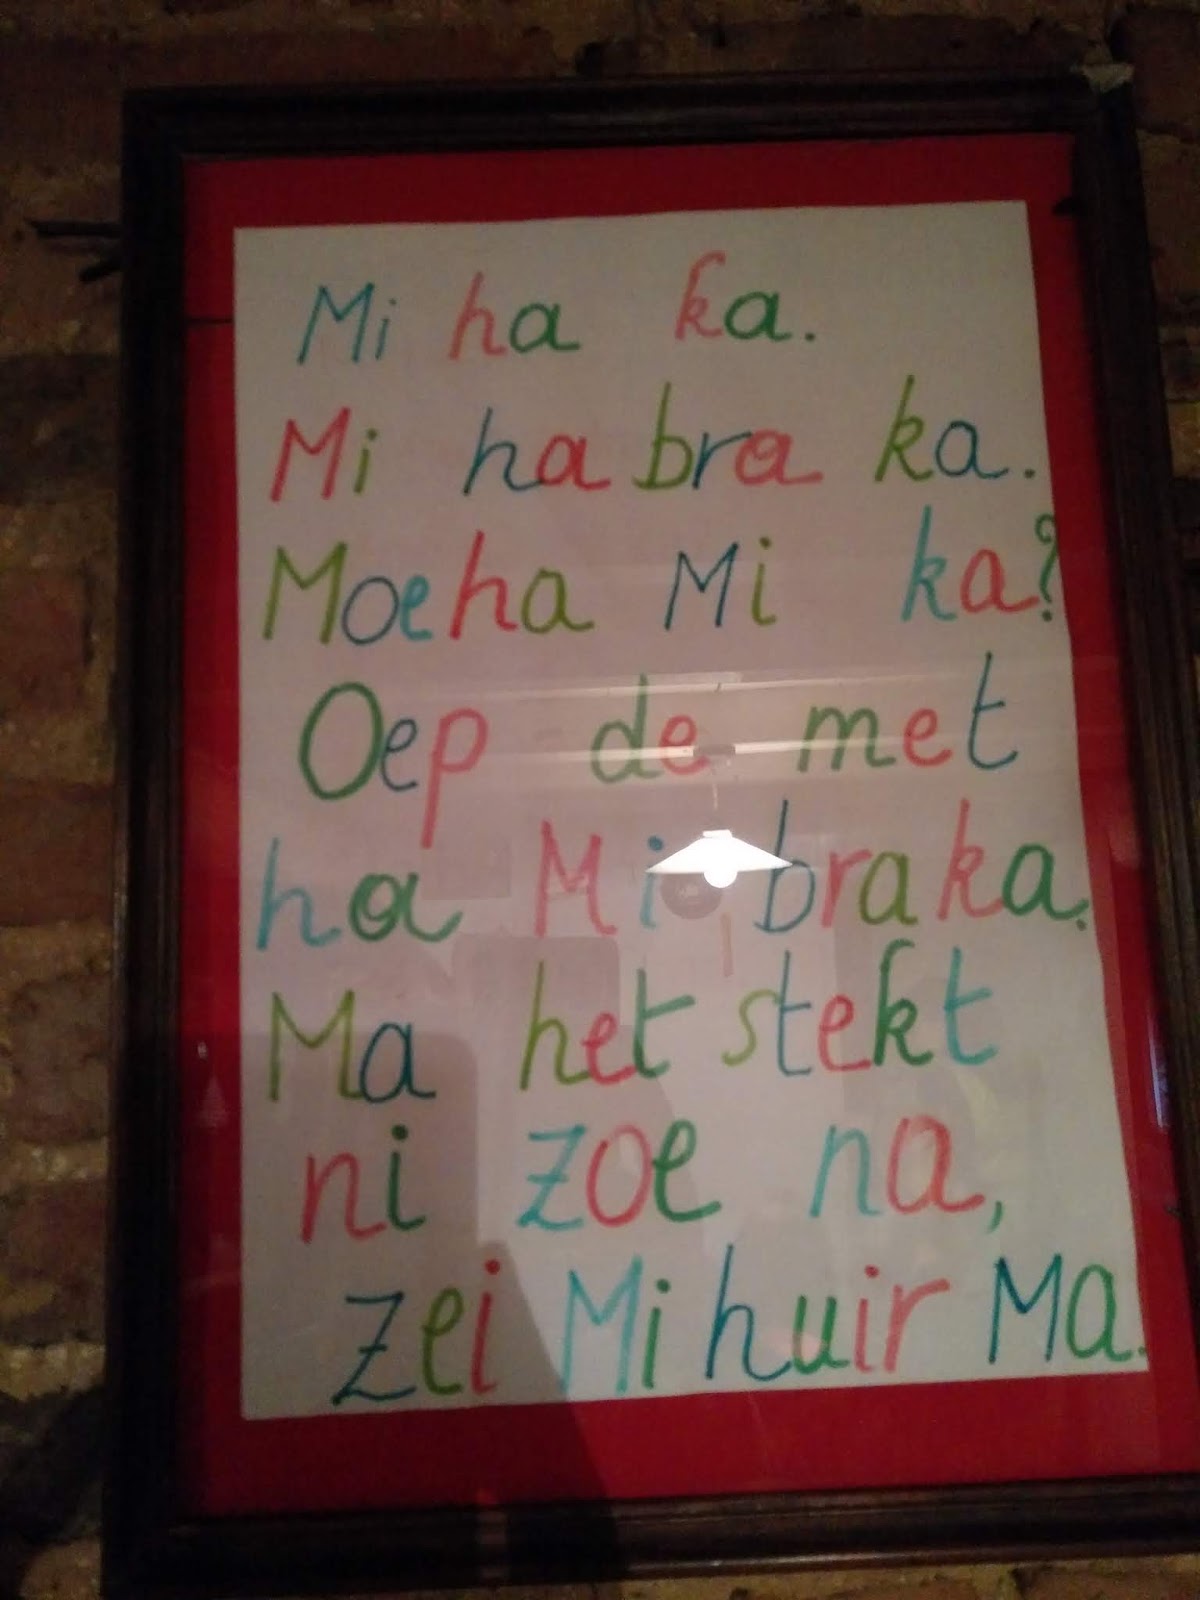 Mi ha ka.
Mi ha bra ka.
Moeha Mi ka?
Oep de met
ha Mi braka.
Ma het stekt
ni zoe na,
zei Mi huir Ma.